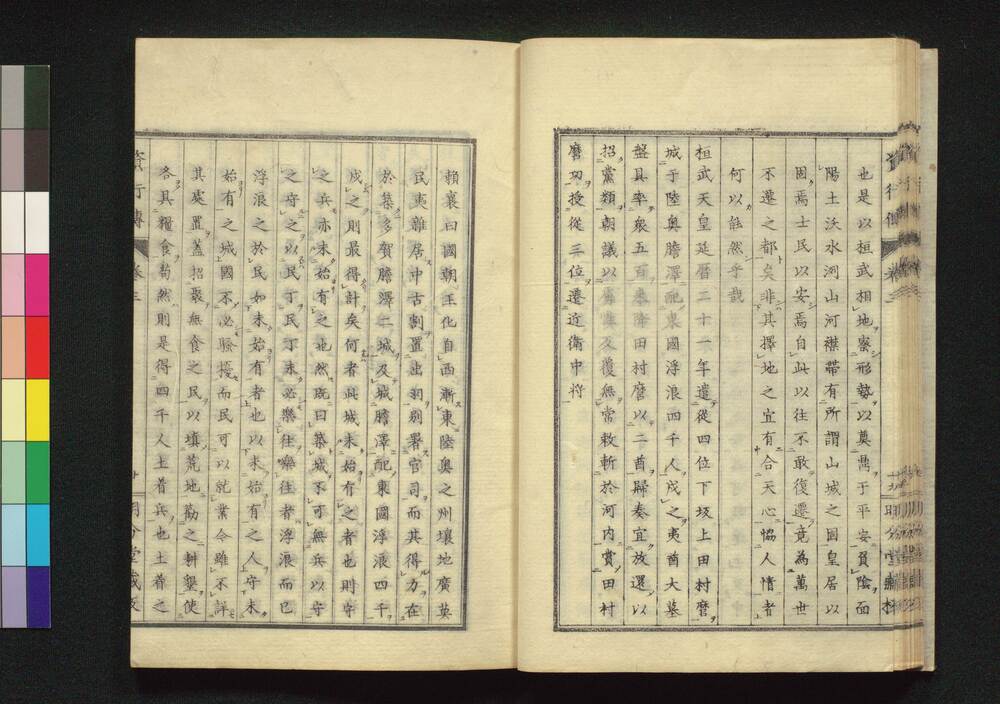 也是以桓武相地察形勢以奠鼎于平安負陰面
陽土沃水洌山河襟帶有所謂山城之固皇居以
固焉士民以安焉自此以往不敢復遷竟為萬世
不遷之都矣非其擇地之宜有合天心恊人情者
何以能然乎哉
桓武天皇延曆二十一年遣從四位下坂上田村麿
城于陸奥膽澤配東國浮浪四千人戍之夷酋大墓
盤具率衆五百來降田村麿以二酋歸奏宜放還以
招黨類朝議以爲反復無常敕斬於河内賞田村
麿功授從三位遷近衛中將
賴襄曰國朝王化自西漸東陸奥之州壤地廣莫
民夷雜居中古割置出羽别署官司而其得力在
於築多賀膽澤二城及城膽澤配東國浮浪四千
戍之則最得計矣何者此城未始有之者也則守
之兵亦未始有之也然既曰築城不可無兵以守
之守之以民丁民丁未必樂往樂往者浮浪而已
浮浪之於民如未始有者也以未始有之人守未
始有之城國不必騷擾而民可以就業今雖不詳
其處置蓋招聚無食之民以填荒地勸之耕墾使
各具糧食苟然則是得四千人土着兵也土着之
卷三